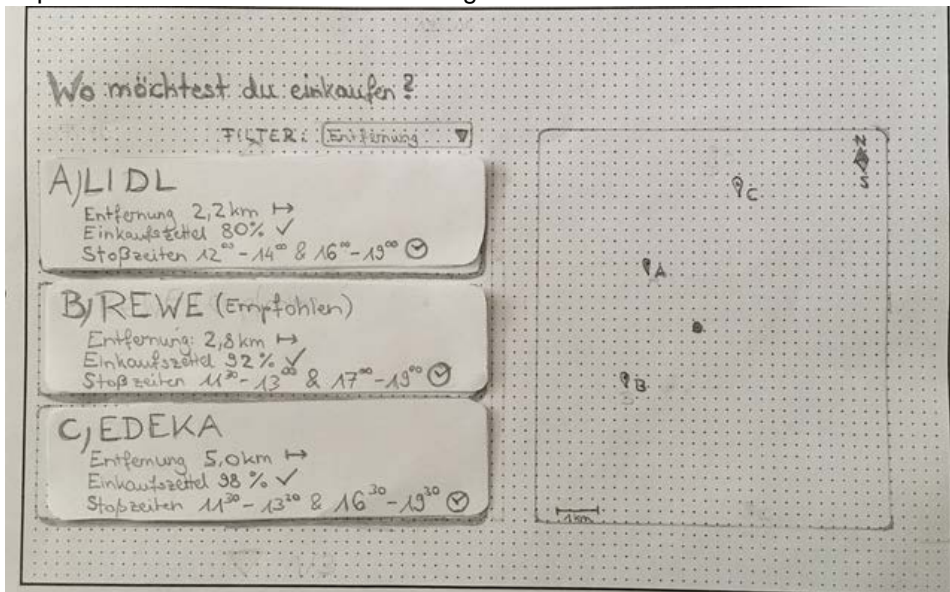 Wo möchtest du einkaufen?
FILTER: Entfernung
A) LIDL
Entfernung 2,2 km
Einkaufszettel 80%
Stoßzeiten 12⁰⁰ - 14⁰⁰ & 16⁰⁰ - 19⁰⁰
B) REWE (Empfohlen)
Entfernung: 2,8 km
Einkaufszettel 92%
Stoßzeiten 11³⁰ - 13⁰⁰ & 17⁰⁰ - 19⁰⁰
C) EDEKA
Entfernung 5,0 km
Einkaufszettel 98%
Stoßzeiten 11³⁰ - 13³⁰ & 16³⁰ - 19³⁰
N
S
C
A
B
1km